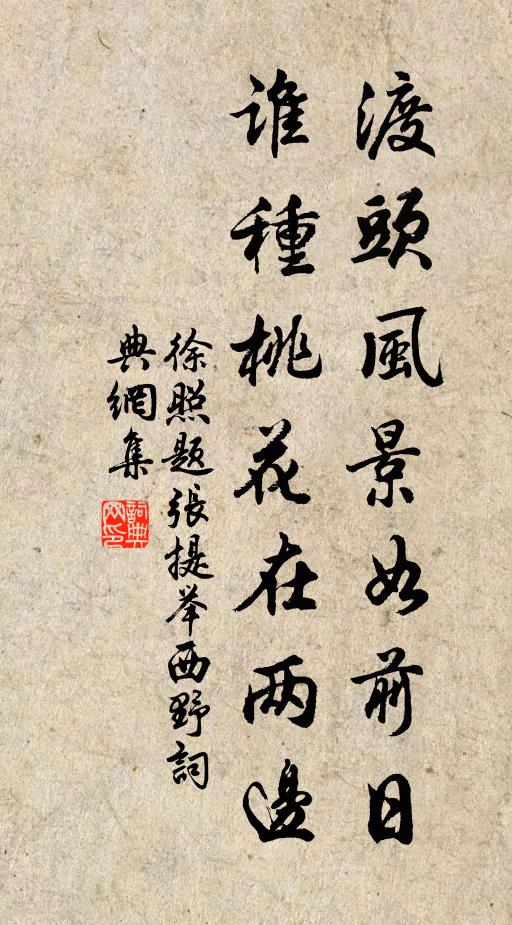 渡頭風景如前日
誰種桃花在两邊
徐照题張提举西野詞
典網集
詞典
网印